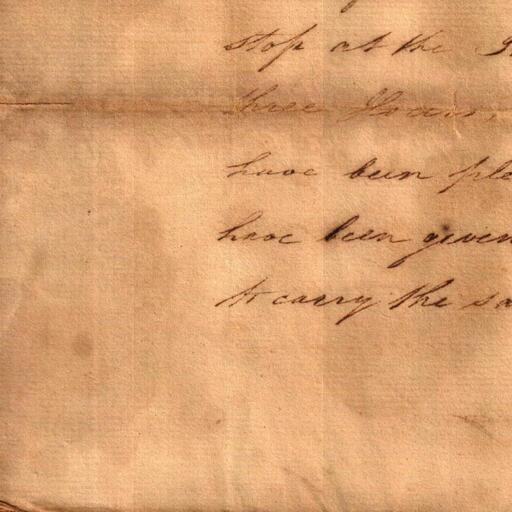 stop at the
three Hours,
have been ple
have been given
to carry the sa